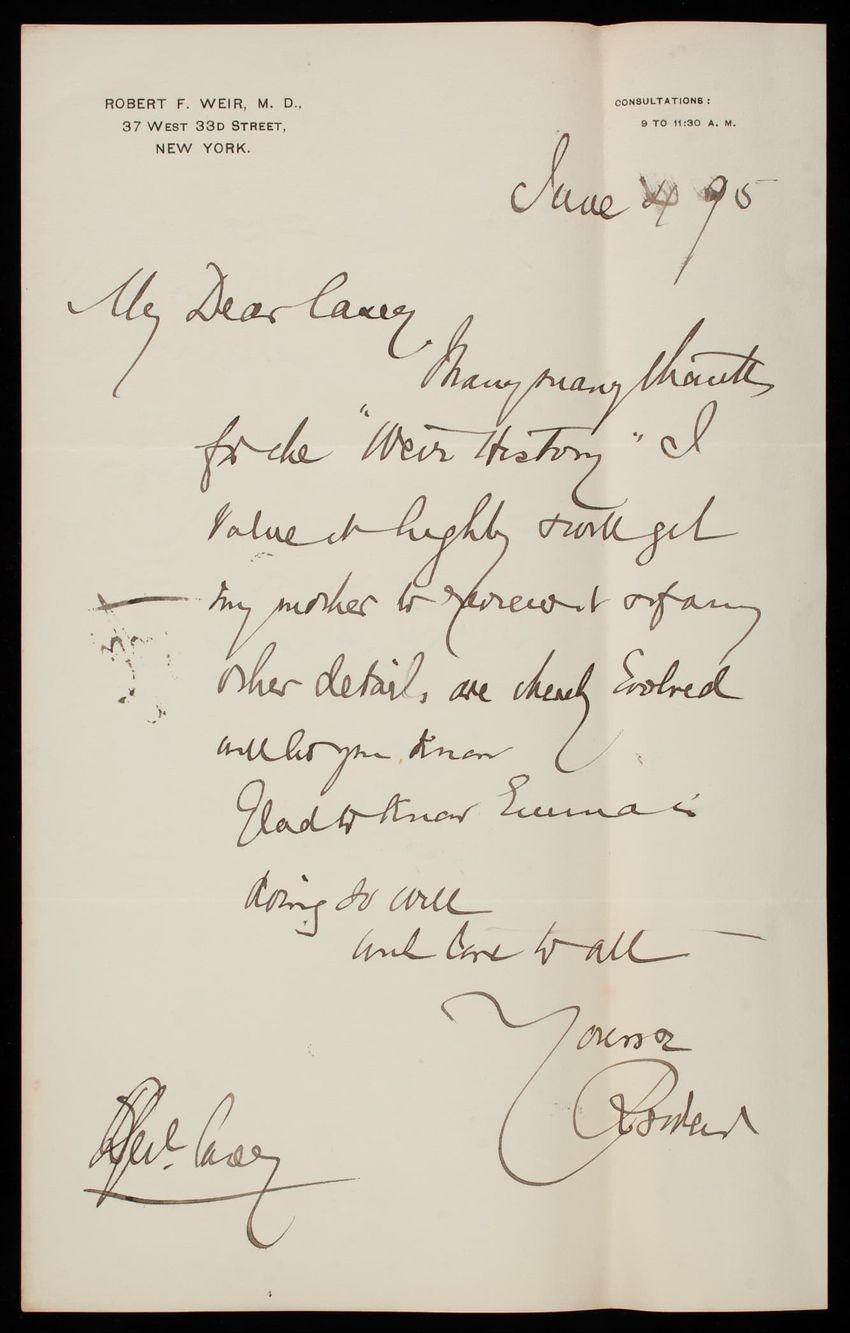 ROBERT F. WEIR, M. D.,
37 WEST 33D STREET,
NEW YORK.
CONSULTATIONS:
9 TO 11:30 A. M.
June 4 95
My Dear Casey,
Many many thanks
for the "Weir History" I
value it highly & will get
my mother to review it & if any
other details are thereby Evolved
will let you know
Glad to know Emma is
doing so well
with love to all
Yours
Genl. Casey